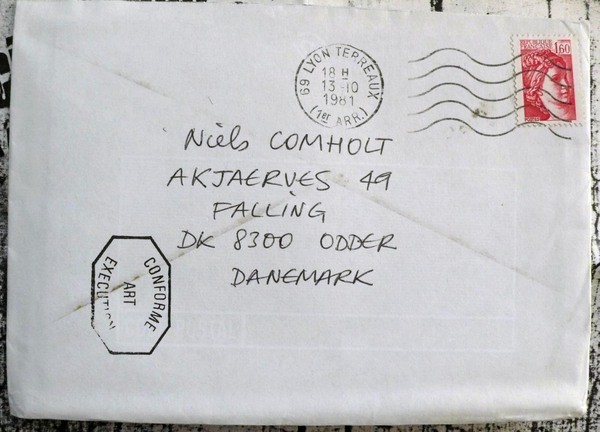 69 LYON TERREAUX
18 H
13-10
1981
(1er ARR.)
1,60
Niels COMHOLT
AKJAERVES 49
FALLING
DK 8300 ODDER
DANEMARK
CONFORME
ART
EXECUTION